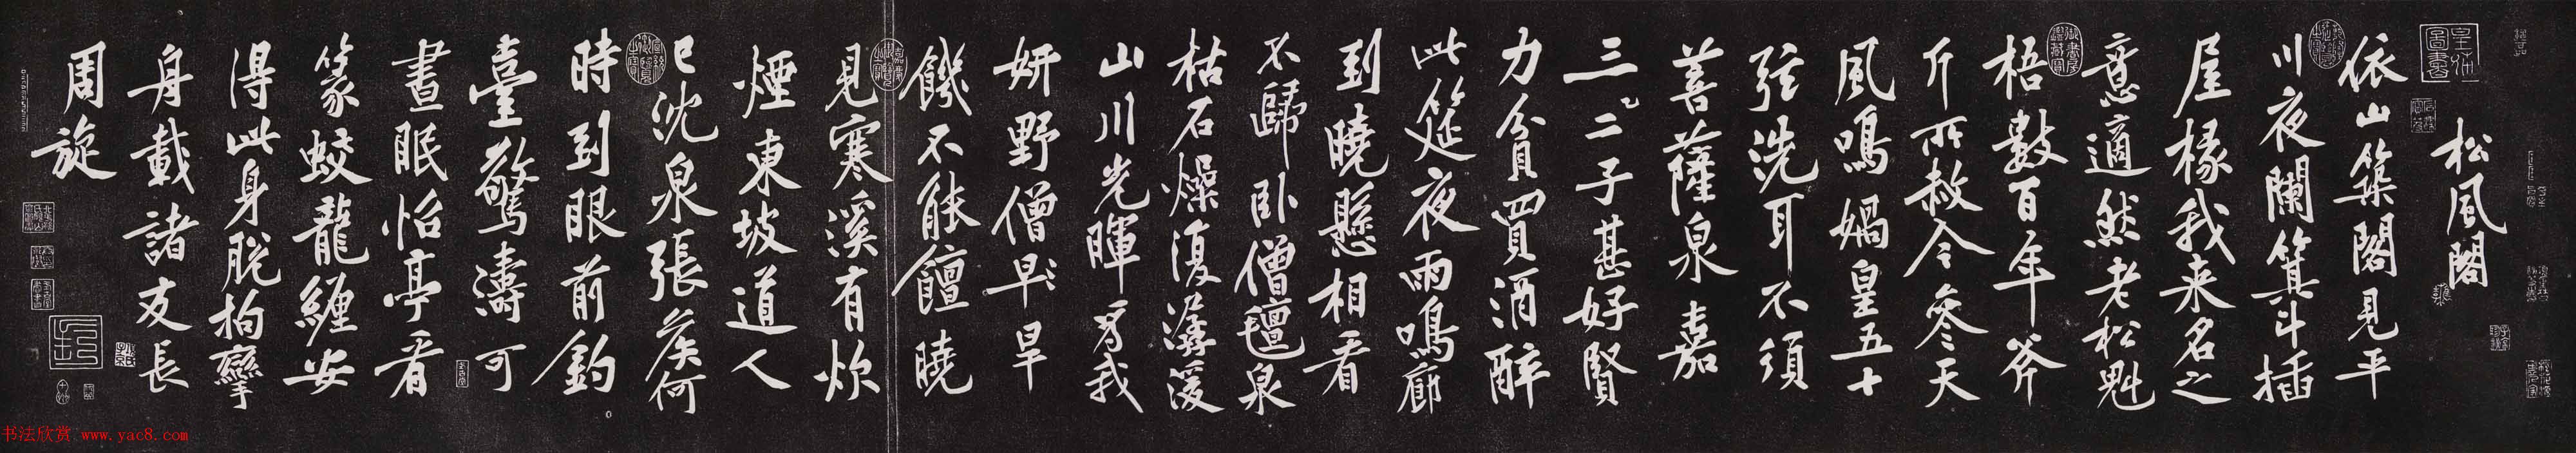 松風閣
依山築閣見平
川夜闌箕斗插
屋椽我来名之
意適然老松魁
梧數百年斧
斤所赦今參天
風鳴媧皇五十
弦洗耳不須
菩薩泉嘉
三二子甚好賢
力貧買酒醉
此筵夜雨鳴廊
到曉懸相看
不歸卧僧氊泉
枯石燥復潺湲
山川光暉為我
妍野僧早旱
饑不能饘曉
見寒溪有炊
煙東坡道人
已沈泉張侯何
時到眼前釣
臺驚濤可
晝眠怡亭看
篆蛟龍纏安
得此身脫拘攣
舟載諸友長
周旋
书法欣赏 www.yac8.com